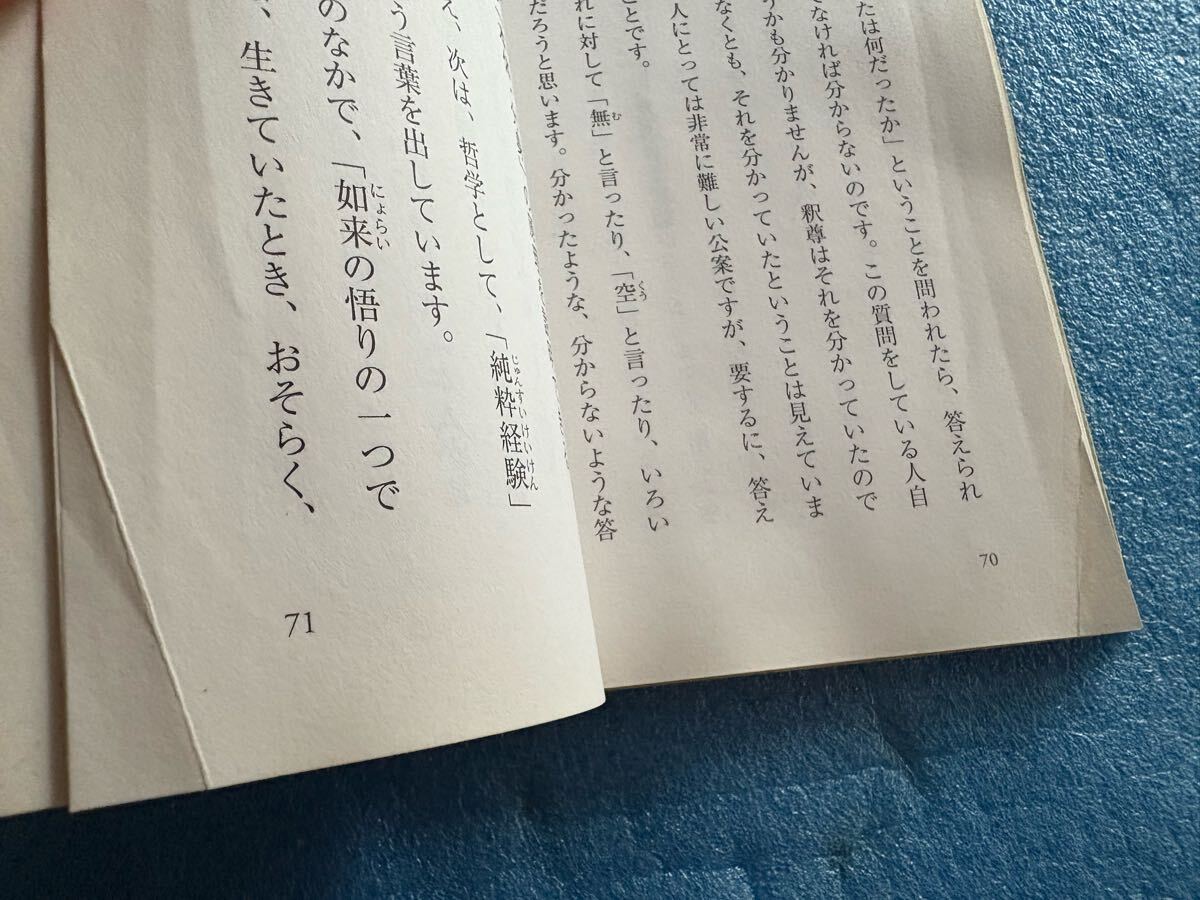 たは何だったか」ということを問われたら、答えられ
なければ分からないのです。この質問をしている人自
うかも分かりませんが、釈尊はそれを分かっていたので
なくとも、それを分かっていたということは見えていま
人にとっては非常に難しい公案ですが、要するに、答え
ことです。
れに対して「無」と言ったり、「空」と言ったり、いろい
だろうと思います。分かったような、分からないような答
70
次は、哲学として、「純粋経験」
う言葉を出しています。
のなかで、「如来の悟りの一つで
、生きていたとき、おそらく、
71